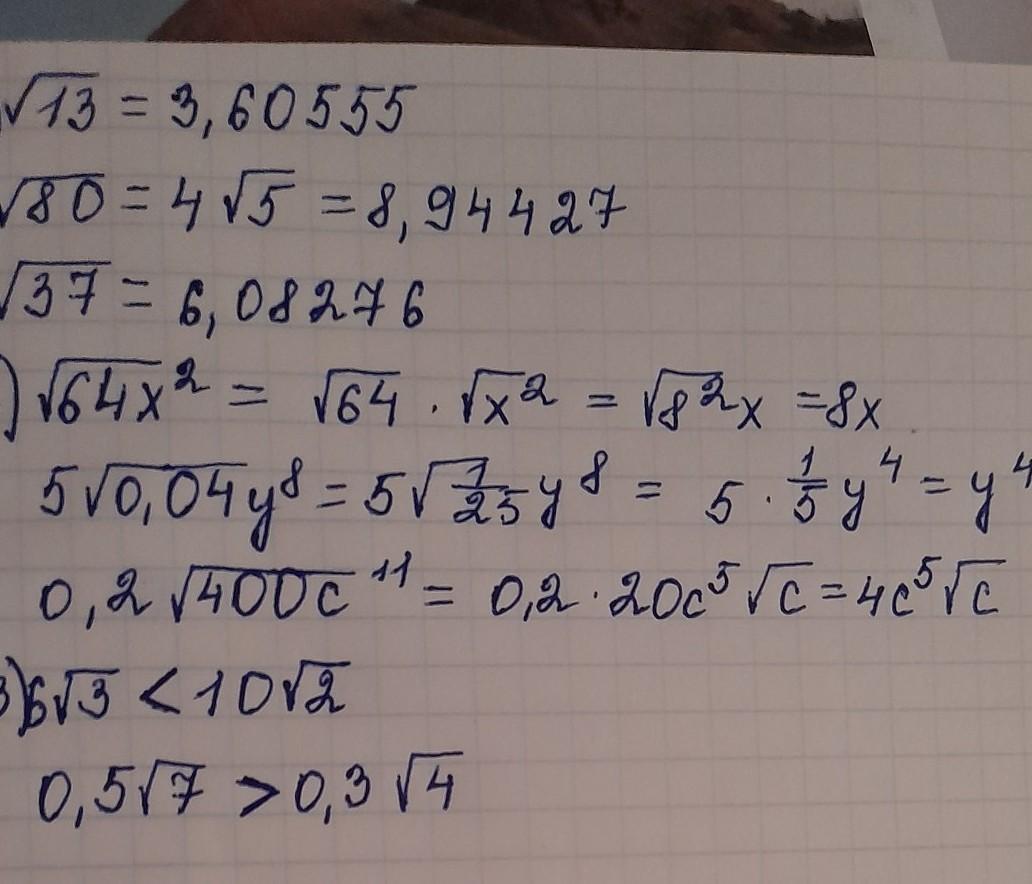 √13 = 3,60555
√80 = 4√5 = 8,94427
√37 = 6,08276
) √64x² = √64 · √x² = √8²x = 8x
5√0,04y⁸ = 5√1/25 y⁸ = 5 · 1/5 y⁴ = y⁴
0,2√400c¹¹ = 0,2 · 20c⁵√c = 4c⁵√c
3) 6√3 < 10√2
0,5√7 > 0,3√4